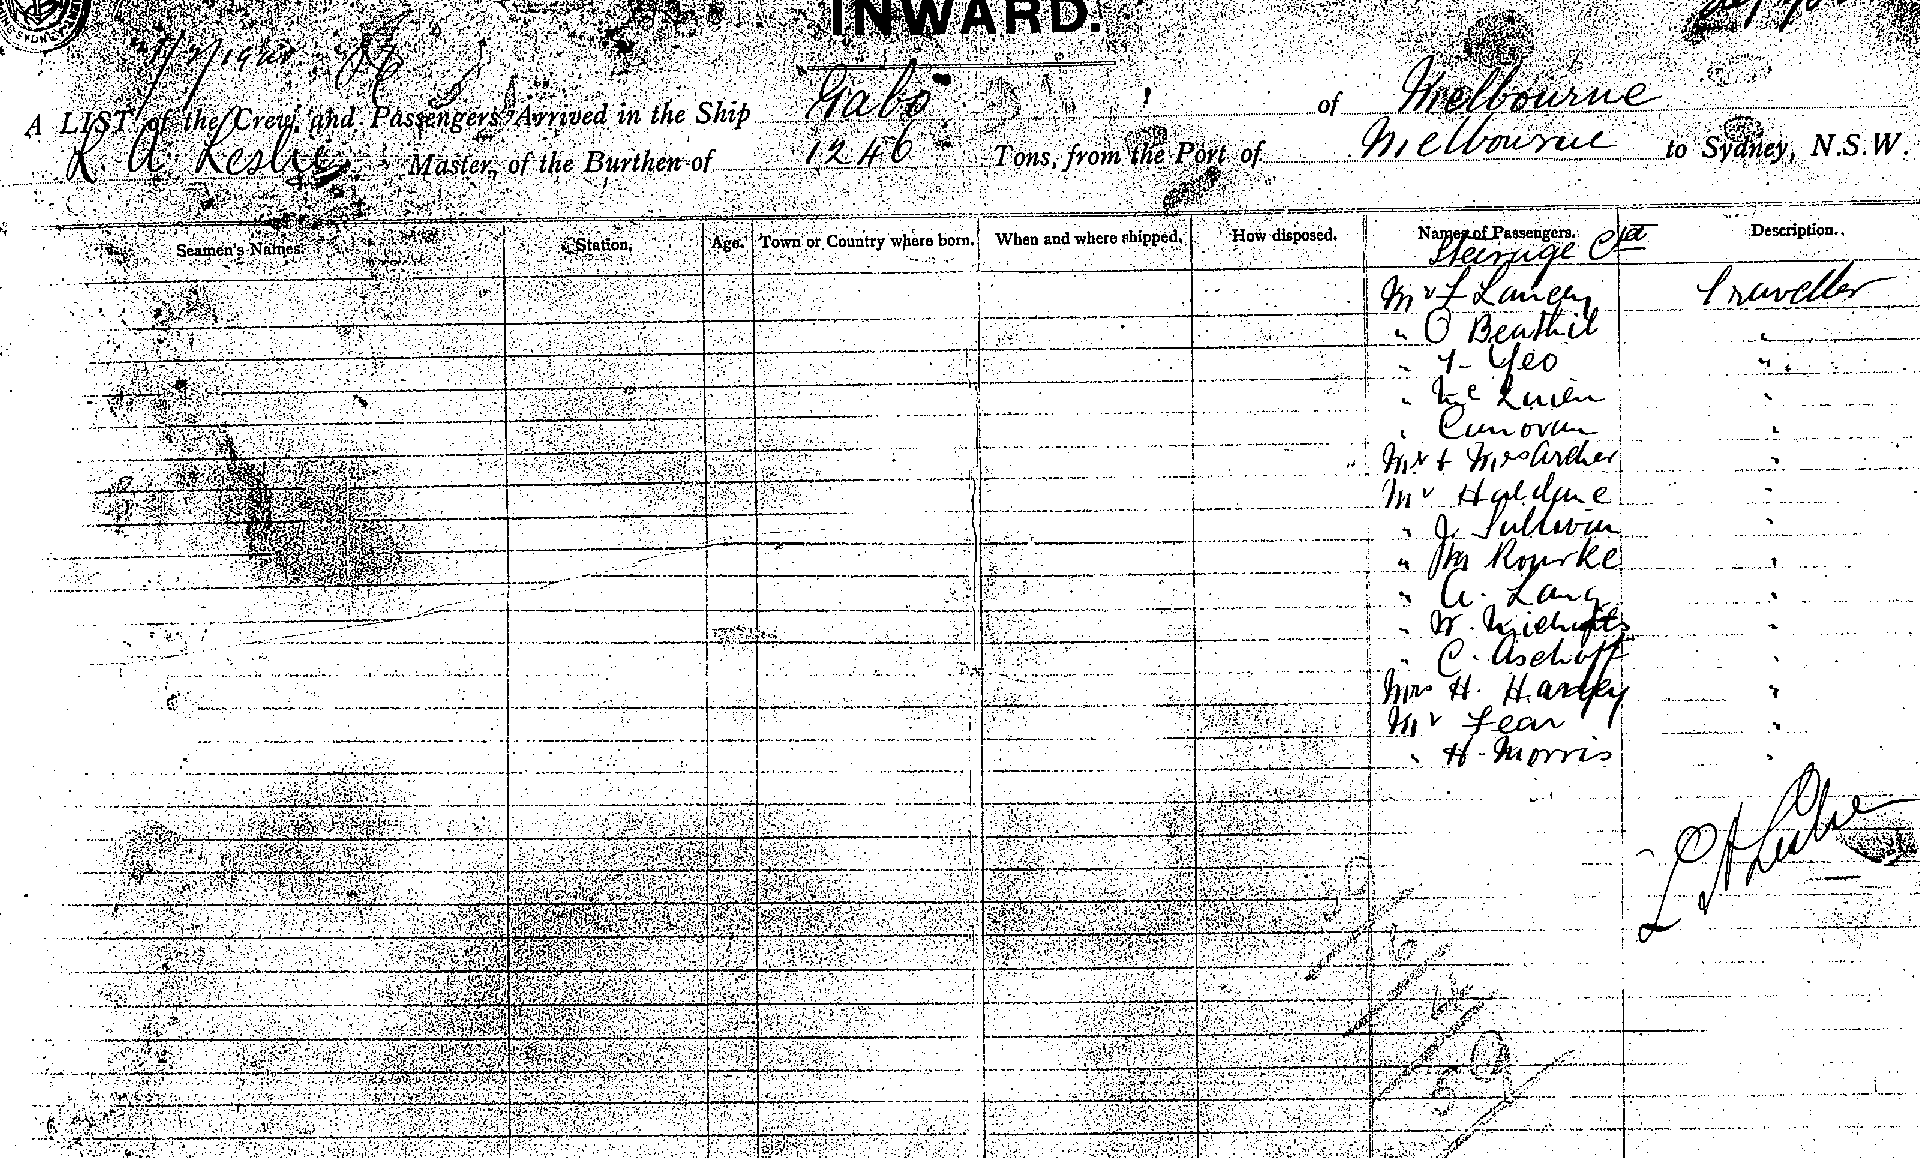 INWARD.
SYDNEY
A LIST of the Crew and Passengers Arrived in the Ship Gabo of Melbourne
L. A. Leslie Master, of the Burthen of 1246 Tons, from the Port of Melbourne to Sydney, N.S.W.
Seamen's Names. Station. Age. Town or Country where born. When and where shipped. How disposed. Names of Passengers. Description.
Steerage Ctd
Mr Lancey Traveller
" O Benthil "
" Yeo "
" Mc "
" "
Mr & Mrs Archer "
Mr Haldane "
" J. Sullivan "
" M Rourke "
" A. Lang "
" W. "
" C. Aschoff "
Mrs H. Harvey "
Mr Fear "
" H. Morris "
L A Leslie